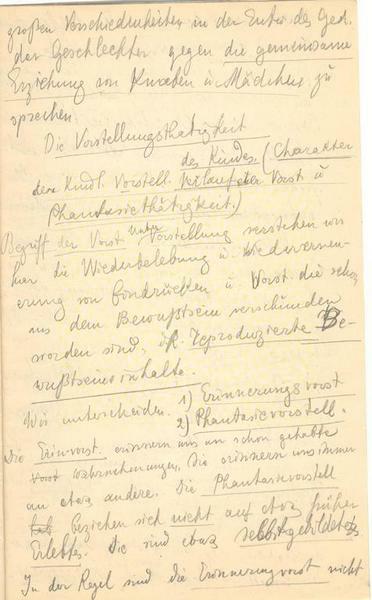 großen Verschiedenheiten in der Entw. des Ged.
der Geschlechter gegen die gemeinsame
Erziehung von Knaben u. Mädchen zu
sprechen.
Die Vorstellungsthätigkeit
des Kindes. (Charakter
der Kindl. Vorstell. Vorst u
Phantasiethätigkeit.)
Begriff der Vorst Unter Vorstellung verstehen wir
hier die Wiederbelebung u. Wiedererneu-
erung von Eindrücken u. Vorst. die schon
aus dem Bewußtsein verschwunden
worden sind, reproduzierte Be-
wußtseinsinhalte.
Wir unterscheiden. 1) Erinnerungsvorst
2) Phantasievorstell.
Die Erinvorst. erinnern uns an schon gehabte
Vorst Wahrnehmungen, Sie erinnern uns immer
an etwas andere. Die Phantasievorstell
beziehen sich nicht auf etwas früher
Erlebtes. Sie sind etwas selbstgebildetes
In der Regel sind die Erinnerungvorst nicht